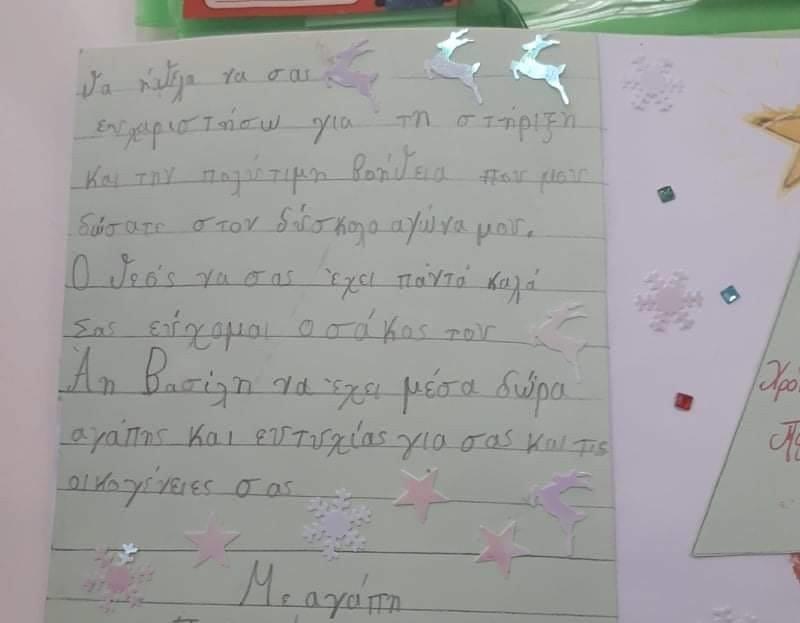 θα ήθελα να σας
ευχαριστήσω για τη στήριξη
και την πολύτιμη βοήθεια που μου
δώσατε στον δύσκολο αγώνα μου.
Ο θεός να σας έχει πάντα καλά
Σας εύχομαι ο σάκος του
Άη Βασίλη να έχει μέσα δώρα
αγάπης και ευτυχίας για σας και τις
οικογένειες σας
Με αγάπη
Χρό